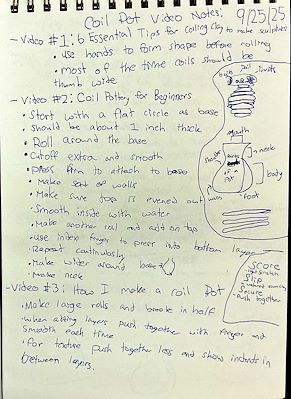 Coil Pot Video Notes: 9/25/25
- Video #1: 6 Essential Tips for Coiling Clay to make sculptures
• use hands to form shape before rolling
• most of the time coils should be
thumb wide
- Video #2: Coil Pottery for Beginners
• Start with a flat circle as base
• should be about 1 inch thick
• Roll around the base
• Cutoff extra and smooth
• press firm to attach to base
• Make sure top is evened out
• Smooth inside with water
• Make another roll and add on top
• use index finger to press into bottom layer
• Repeat continuously
• Make wider around base
• Make neck
- Video #3: How I make a coil Pot
• Make large rolls and break in half
• when adding layers push together with finger and
smooth each time
• For texture push together less and show indents in
between layers.
Mouth
neck
body
Parts
of a
Pot
foot
Score
Slip
Secure
Push together